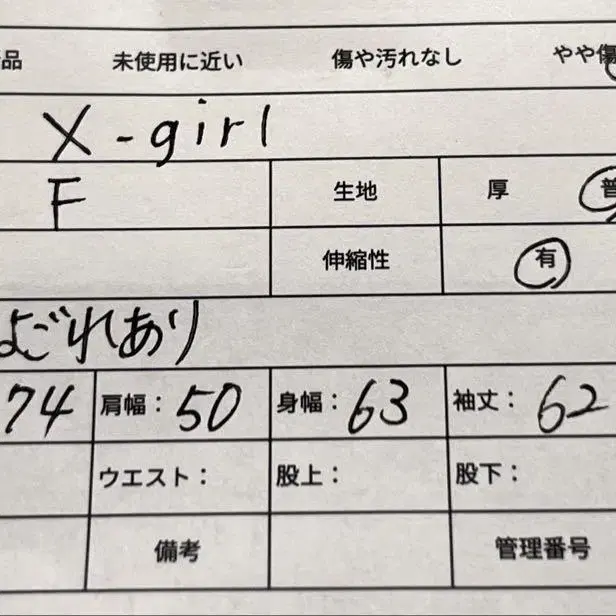 品 未使用に近い 傷や汚れなし やや傷
X-girl
F 生地 厚 普
伸縮性 有
よごれあり
74 肩幅：50 身幅：63 袖丈：62
ウエスト： 股上： 股下：
備考 管理番号